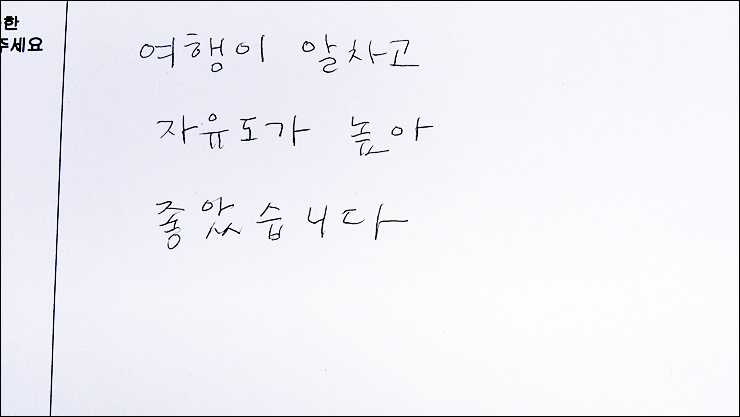 한
주세요
여행이 알차고
자유도가 높아
좋았습니다